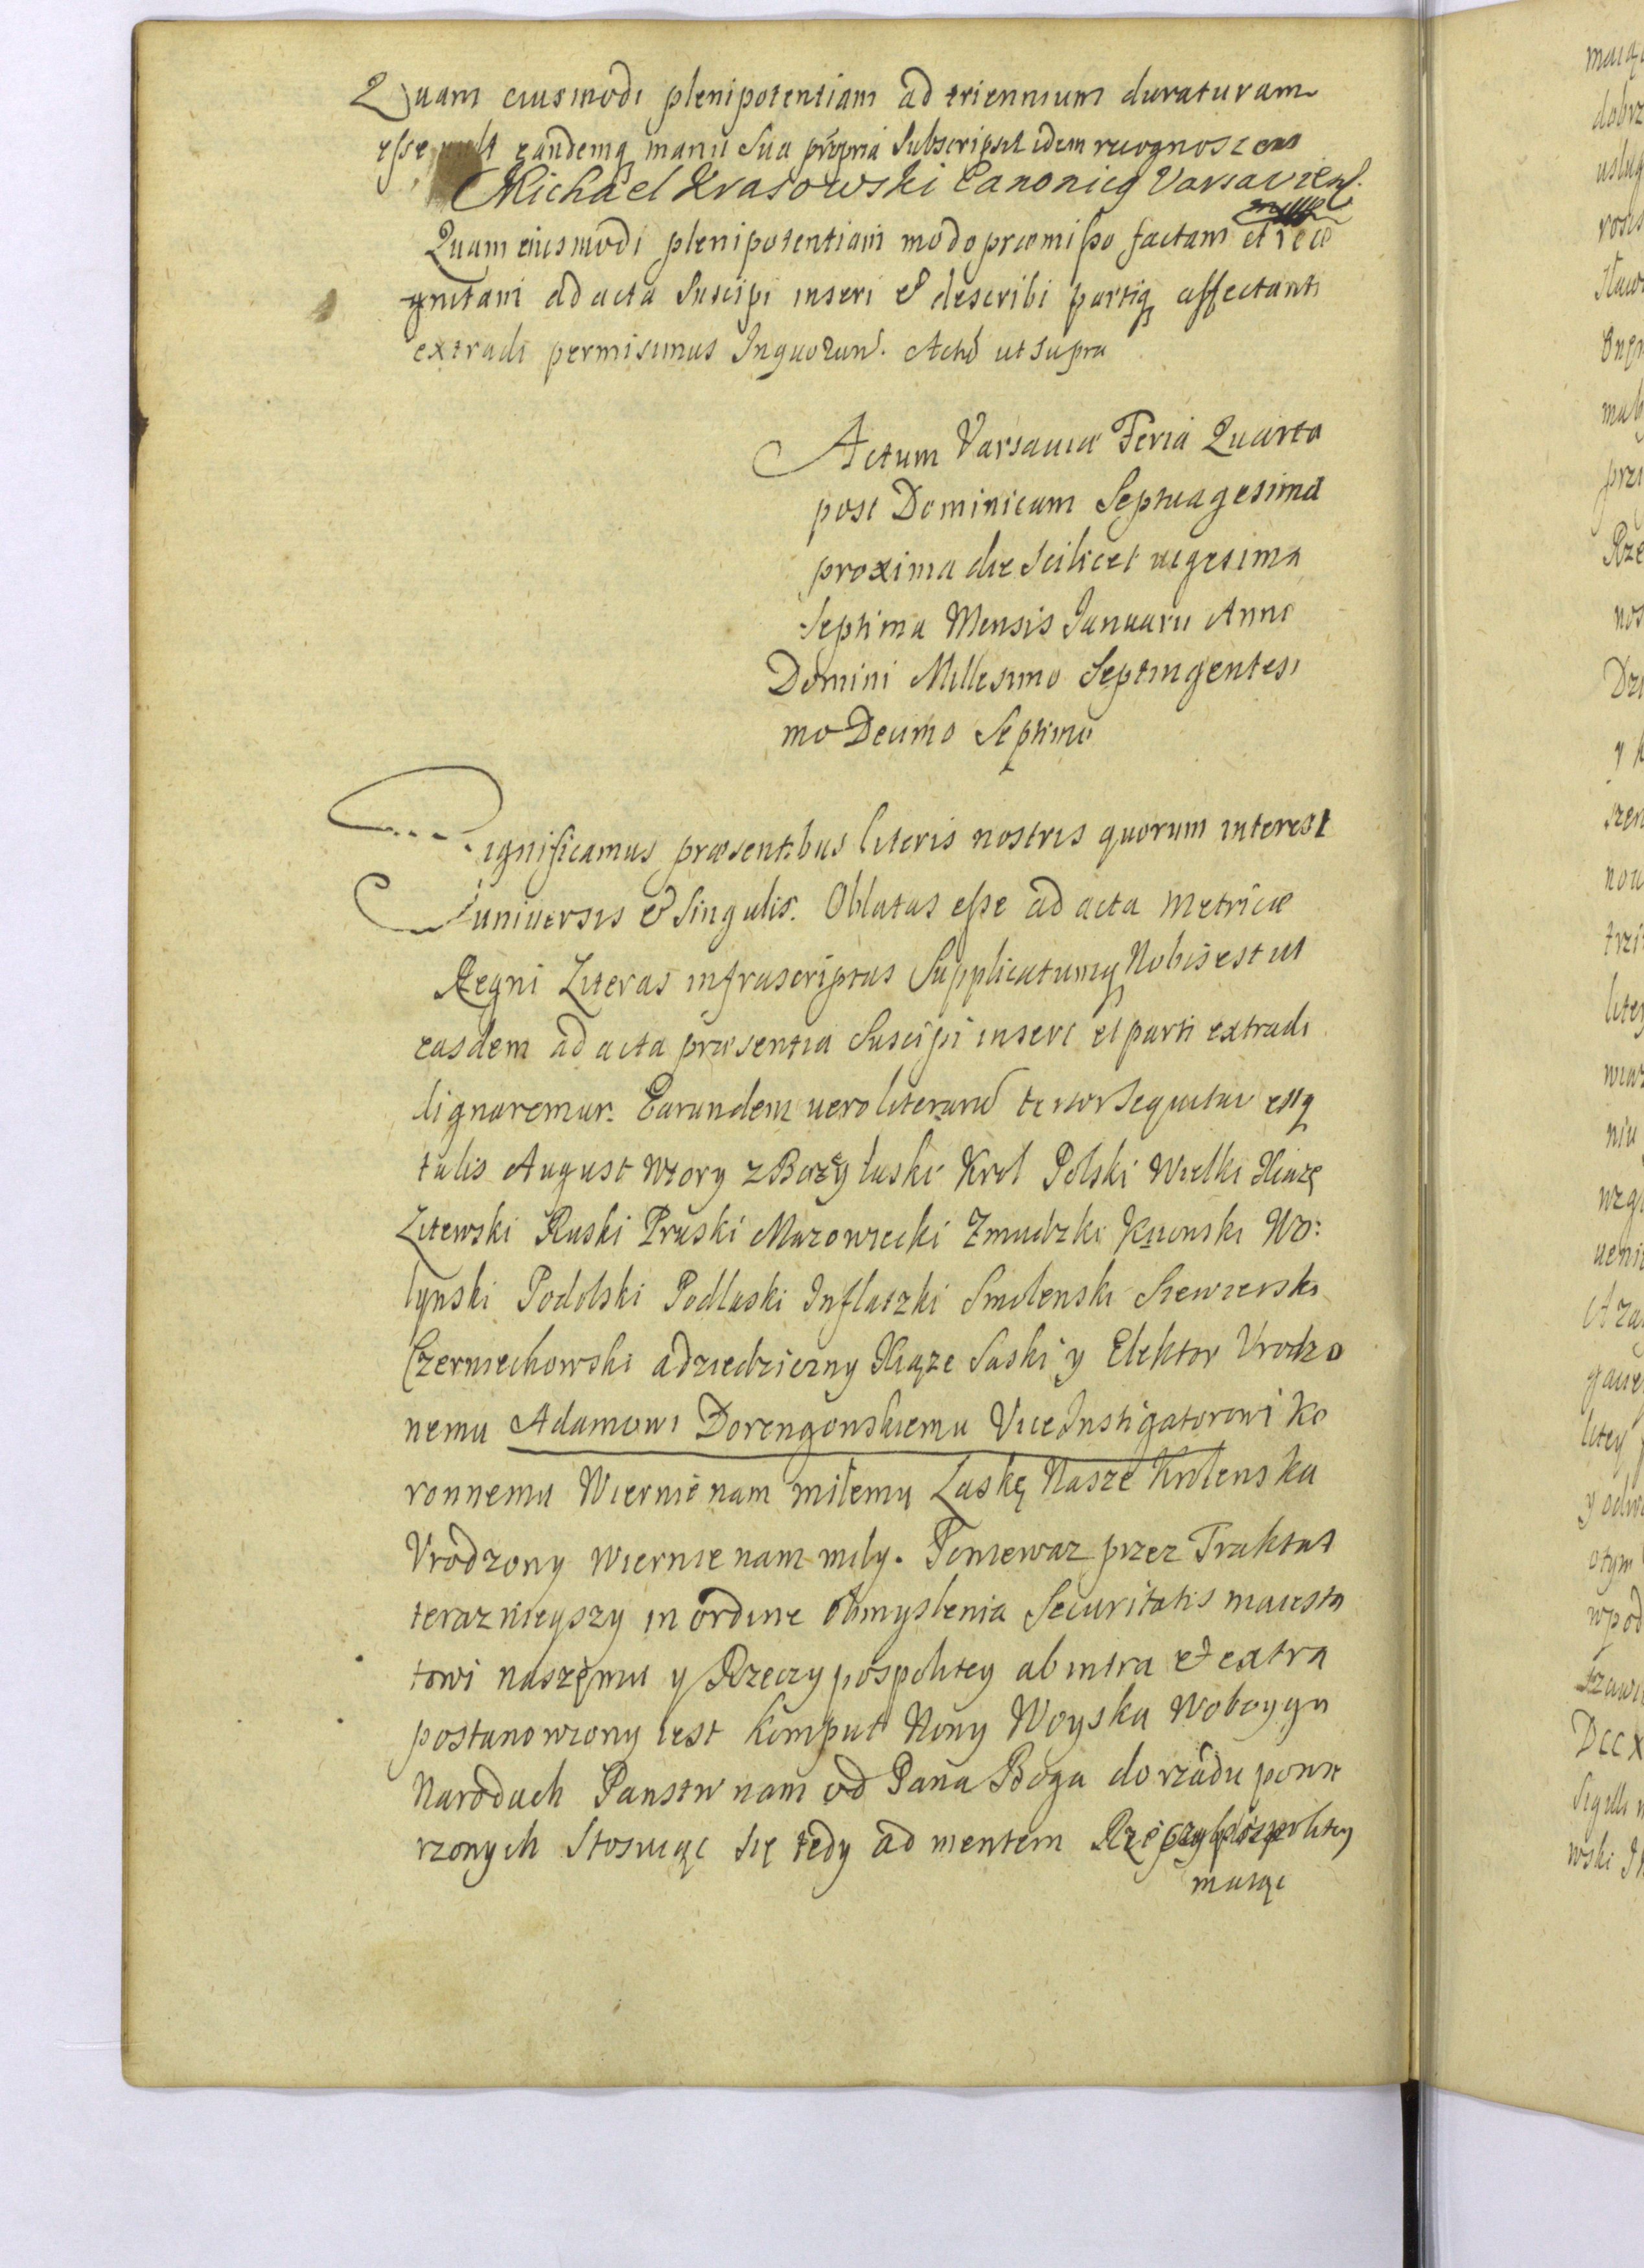 Quam eiusmodi plenipotentiam ad triennium duraturam
esse vult eandemq manu sua propria subscripsit idem recognoscens
Michael Krasowski Canonicq Varsavien.
Quam eiusmodi plenipotentiam modo præmisso factam et reco
gnitam ad acta suscipi inseri & describi partiq affectanti
extradi permisimus In quorum. Actũ ut supra
Actum Varsauiæ Feria Quarta
post Dominicam Septuagesimæ
proxima die Scilicet uigesima
Septima Mensis Januarii Anno
Domini Millesimo Septingentesi
mo Decimo Septimo
Significamus præsentibus literis nostris quorum interest
uniuersis & singulis. Oblatas esse ad acta Metricæ
Regni Literas infrascriptas Supplicatumq Nobis est ut
easdem ad acta præsentia Suscipi inseri et parti extradi
dignaremur. Earundem uero literarum tenor sequitur estq
talis August wtory z Bozey łaski Krol Polski Wielki Xiaze
Litewski Ruski Pruski Mazowiecki Zmudzki Kijowski Wo:
lynski Podolski Podlaski Inflatzki Smolenski Siewierski
Czerniechowski a dziedziczny Xiąze Saski y Elektor Vrodzo
nemu Adamowi Dorengowskiemu Vice Instigatorowi Ko
ronnemu Wiernie nam miłemu Laskę Nasze Krolenska
Vrodzony wiernie nam mily. Poniewaz przez Traktat
teraznieyszy in ordine obmyslenia Securitatis maiesta
towi naszemu y Rzeczypospolitey ab intra et extra
postanowiony iest komput Nowy Woyska Woboygu
Narodach Panstw nam od Pana Boga do rządu powie
rzonych Stosuiąc się tedy ad mentem Rzeczypospolitey
maiąc